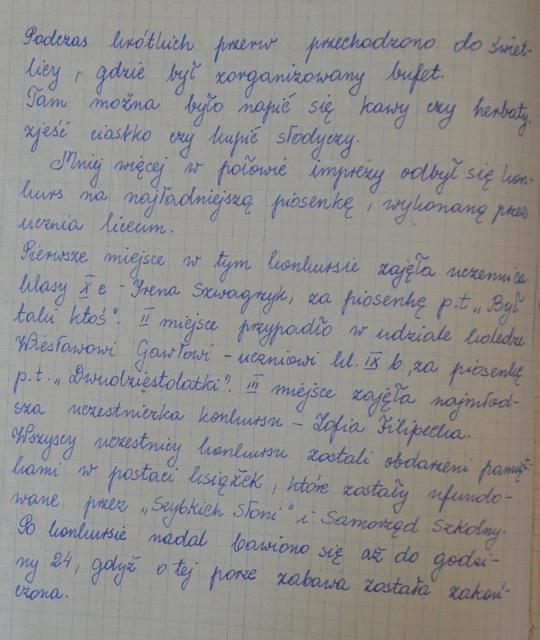 Podczas krótkich przerw przechodzono do świet-
licy, gdzie był zorganizowany bufet.
Tam można było napić się kawy czy herbaty,
zjeść ciastko czy kupić słodyczy.
Mniej więcej w połowie imprezy odbył się kon-
kurs na najładniejszą piosenkę, wykonaną przez
ucznia liceum.
Pierwsze miejsce w tym konkursie zajęła uczennica
klasy X c - Irena Szwagrzyk, za piosenkę p.t „Był
taki ktoś". II miejsce przypadło w udziale koledze
Wiesławowi Gawłowi - uczniowi kl. IX b, za piosenkę
p.t. „Dwudziestolatki". III miejsce zajęła najmłod-
sza uczestniczka konkursu - Zofia Filipecka.
Wszyscy uczestnicy konkursu zostali obdarzeni pamiąt-
kami w postaci książek, które zostały ufundo-
wane przez „Szybkich Słoni" i Samorząd Szkolny.
Po konkursie nadal bawiono się aż do godzi-
ny 24, gdyż o tej porze zabawa została zakoń-
czona.